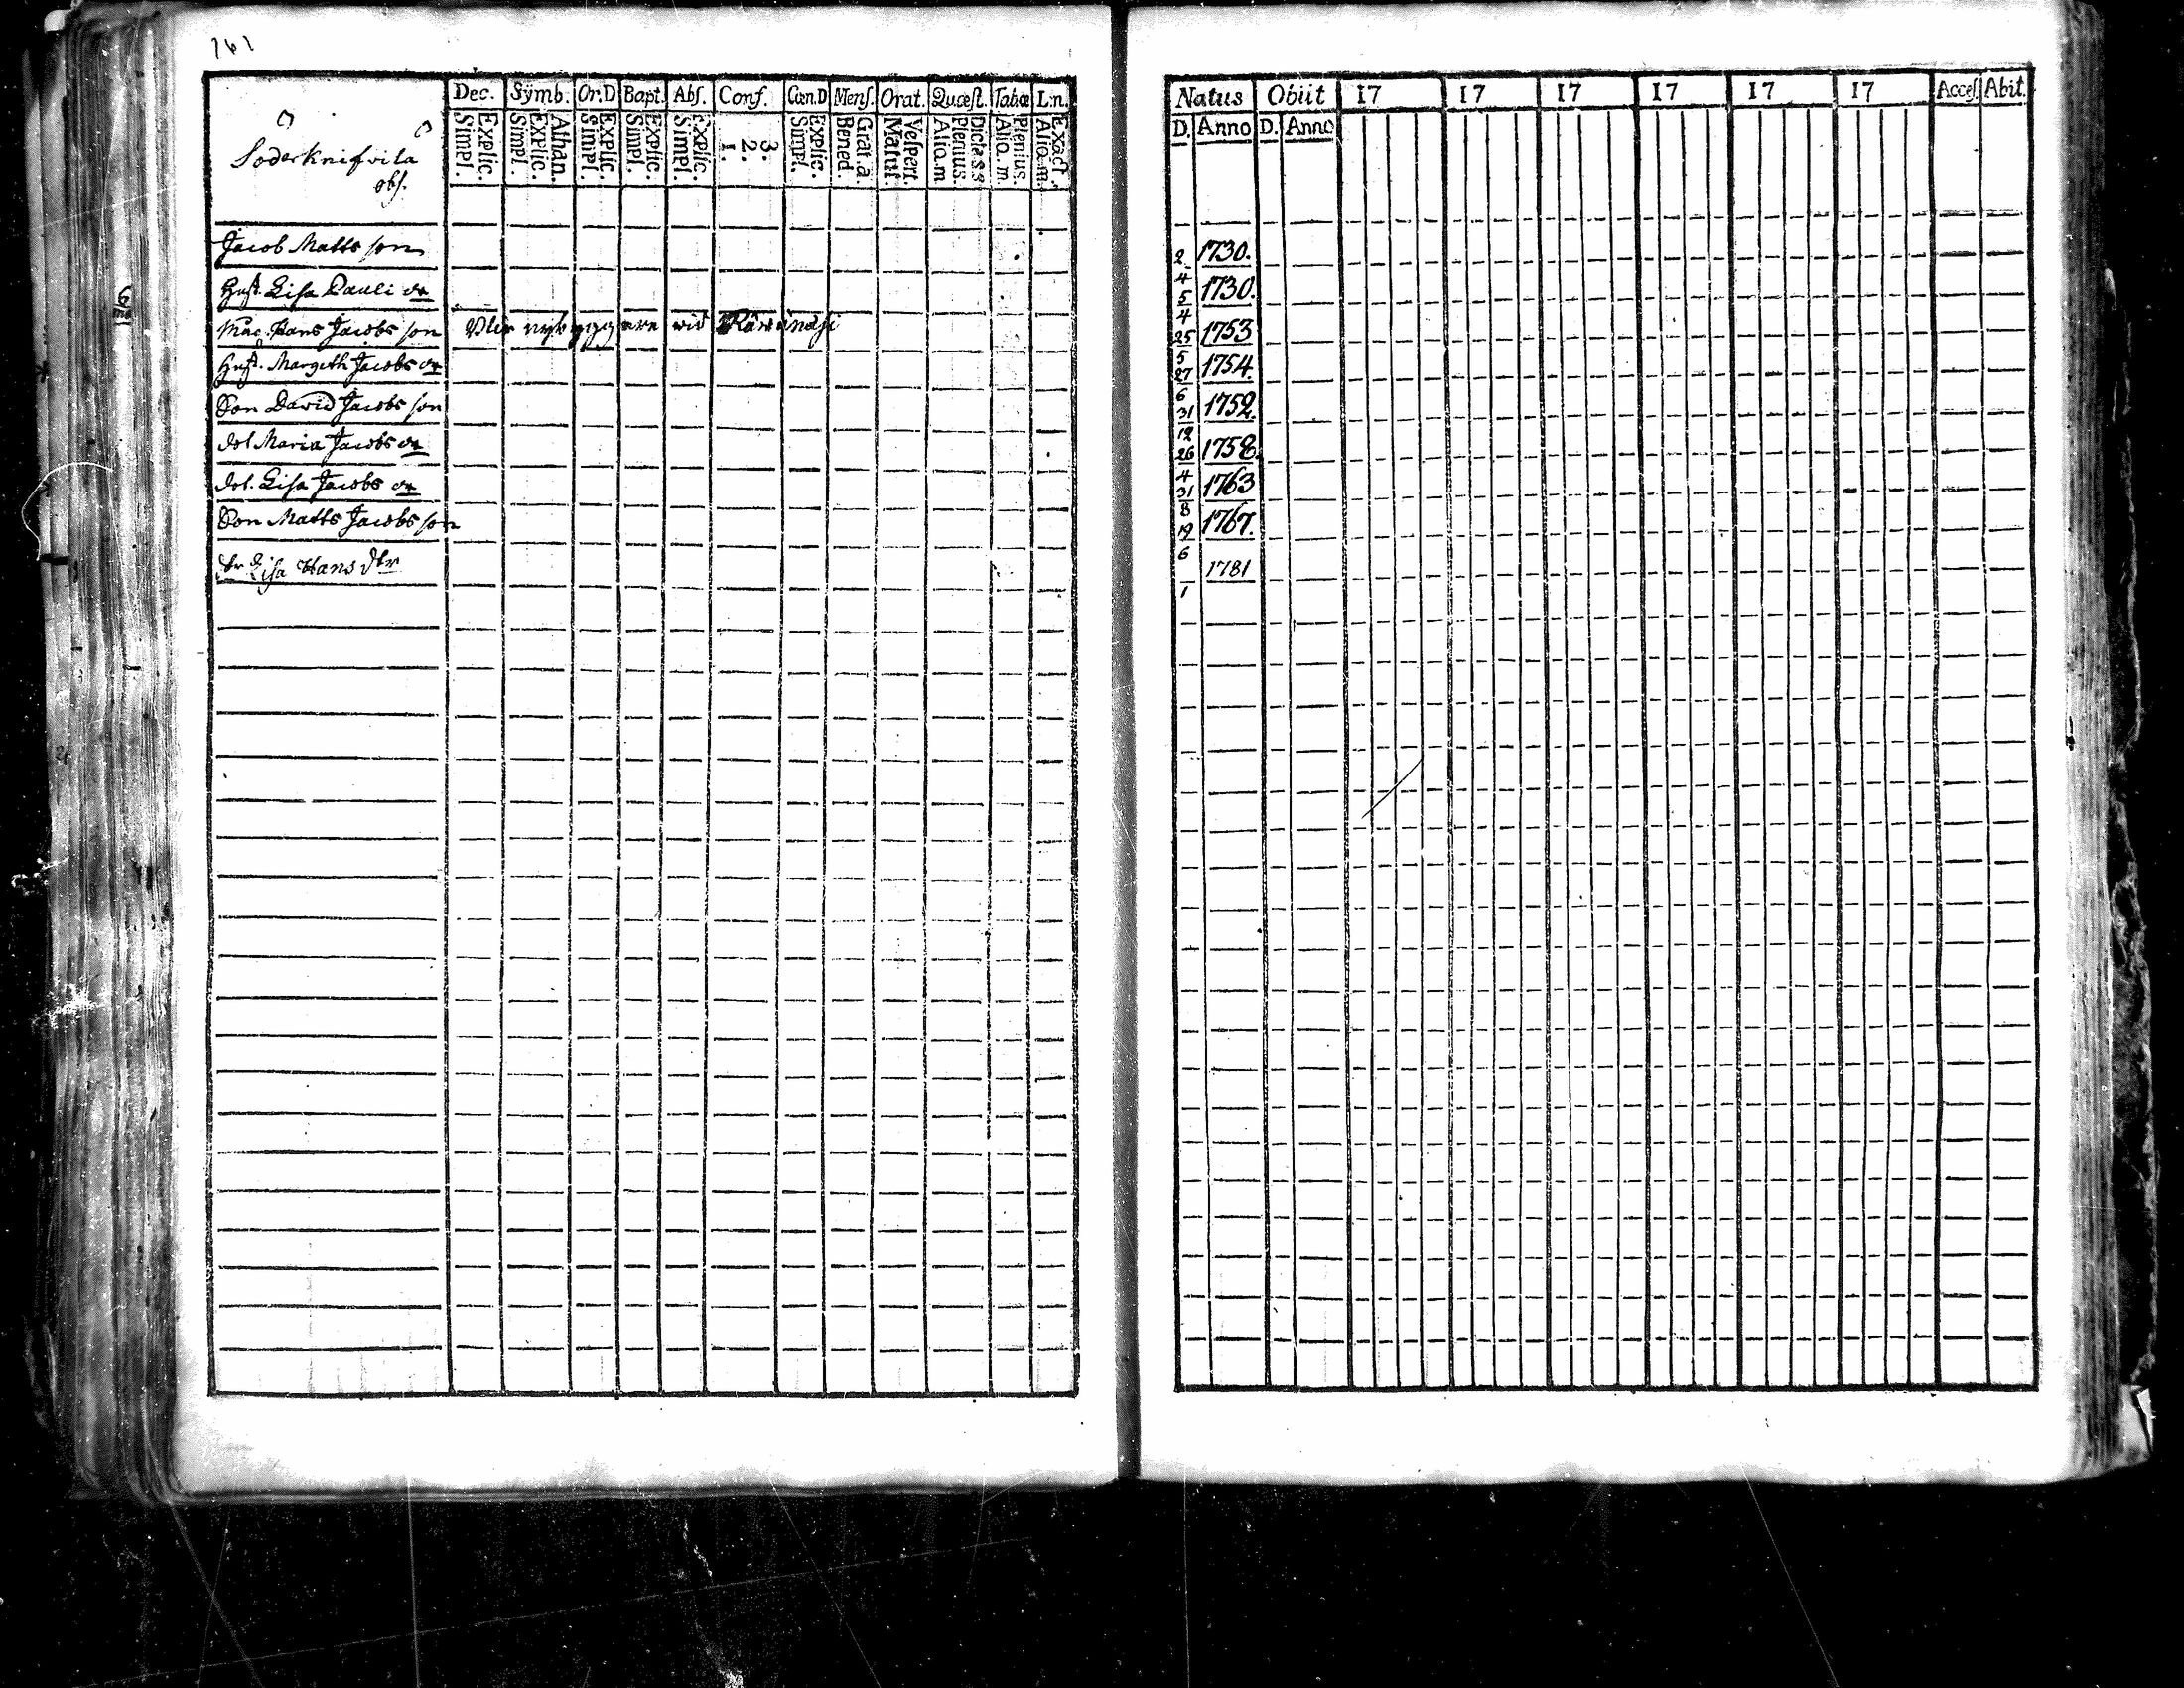 161
Dec. Symb. Or.D Bapt. Abs. Conf. Cœn.D Mens. Orat. Quæst. Tabœ L.n.
Explic. Simpl. Athan. Explic. Simpl. Explic. Simpl. Explic. Simpl. Explic. Simpl. 3. 2. 1. Explic. Simpl. Grat.a. Bened. Vespert. Matut. Dicta.s.s Plenius. Alio.m Plenius. Alio.m. Exact. Alio.m.
Söderknifsila
obs.
Jacob Matts son
Hust. Lisa Pauli dr
Måg. Hans Jacobs son Blir nybyggare vid
Hust. Margeth Jacobs dr
Son David Jacobs son
dot Maria Jacobs dr
dot. Lisa Jacobs dr
Son Matts Jacobs son
Lisa Hans dtr
Natus Obiit 17 17 17 17 17 17 Acces. Abit.
D. Anno D. Anno
2/4 1730.
5/4 1730.
25/5 1753
27/6 1754.
31/12 1752.
26/4 1758.
31/8 1763
19/6 1767.
1 1781